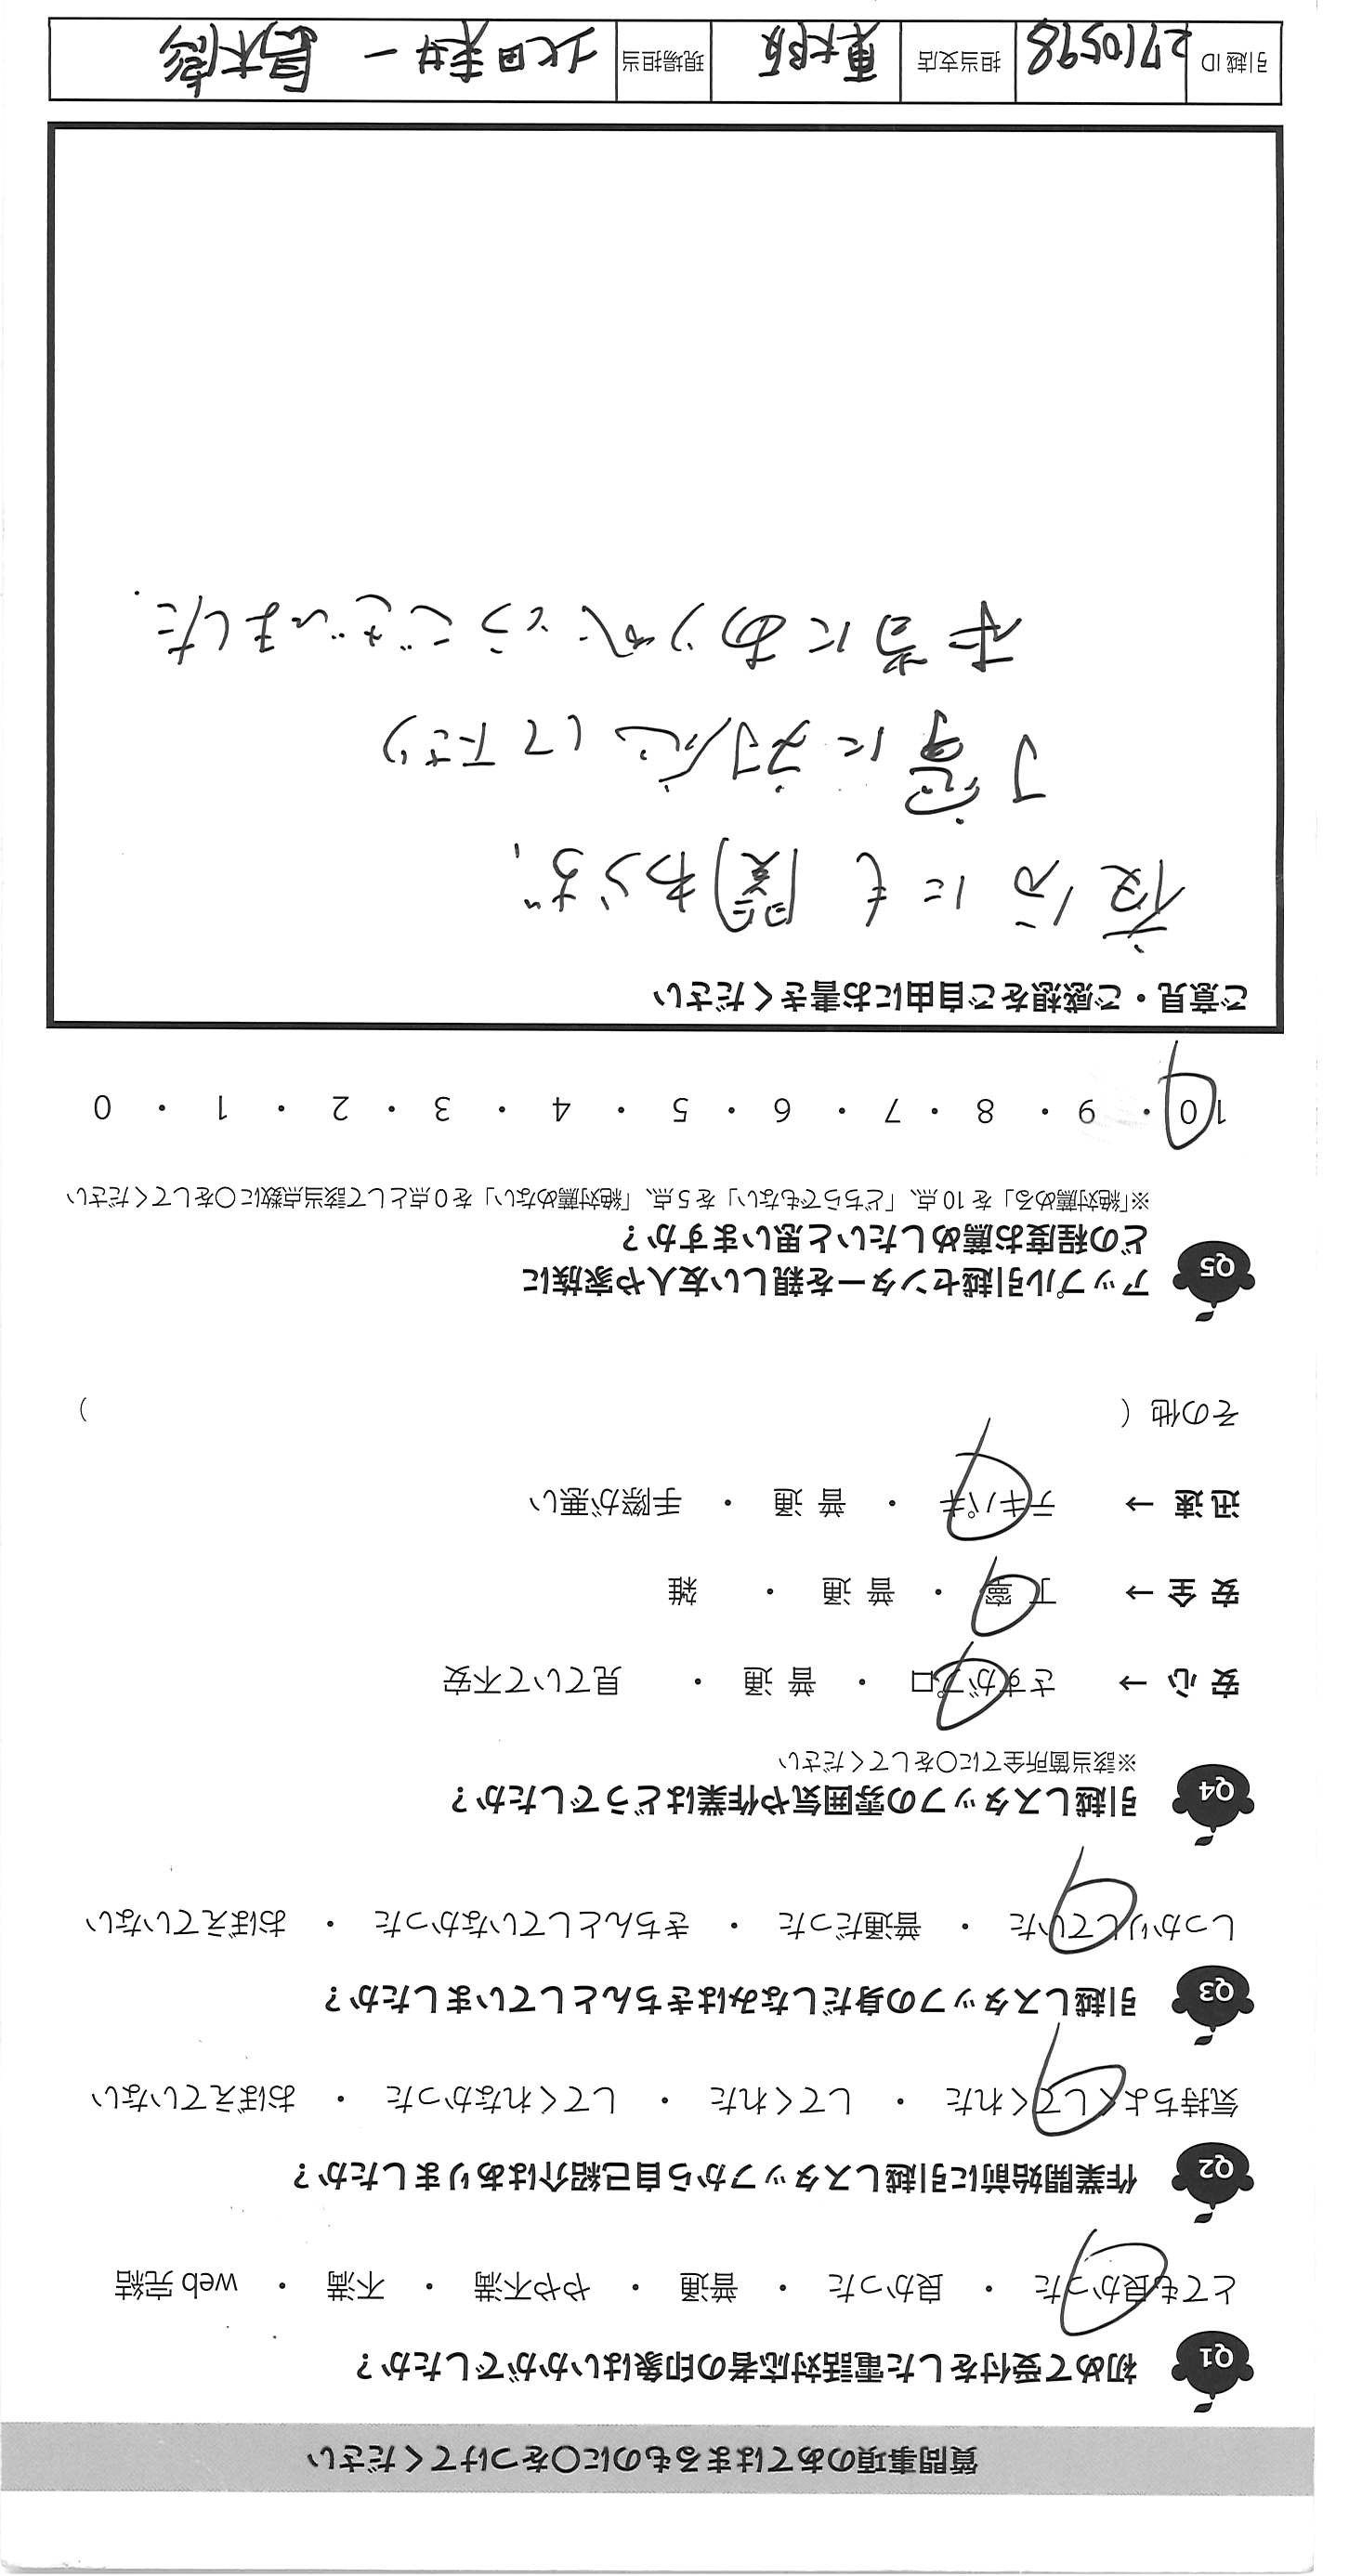 質問事項のあてはまるものに〇をつけてください
Q1 初めて受付をした電話対応者の印象はいかがでしたか？
とても良かった ・ 良かった ・ 普通 ・ やや不満 ・ 不満 ・ web 完結
Q2 作業開始前に引越しスタッフから自己紹介はありましたか？
気持ちよくしてくれた ・ してくれた ・ してくれなかった ・ おぼえていない
Q3 引越しスタッフの身だしなみはきちんとしていましたか？
しっかりしていた ・ 普通だった ・ きちんとしていなかった ・ おぼえていない
Q4 引越しスタッフの雰囲気や作業はどうでしたか？
※該当箇所全てに〇をしてください
安心 → さすがプロ ・ 普通 ・ 見ていて不安
安全 → 丁寧 ・ 普通 ・ 雑
迅速 → テキパキ ・ 普通 ・ 手際が悪い
その他（ ）
Q5 アップル引越センターを親しい友人や家族に
どの程度お薦めしたいと思いますか？
※「絶対薦める」を 10 点、「どちらでもない」を 5 点、「絶対薦めない」を 0 点として該当点数に〇をしてください
10 ・ 9 ・ 8 ・ 7 ・ 6 ・ 5 ・ 4 ・ 3 ・ 2 ・ 1 ・ 0
ご意見・ご感想をご自由にお書きください
夜分にも関わらず、
丁寧に対応して下さり
本当にありがとうございました.
引越 ID 2710598 担当支店 東大阪 現場担当 北田 一